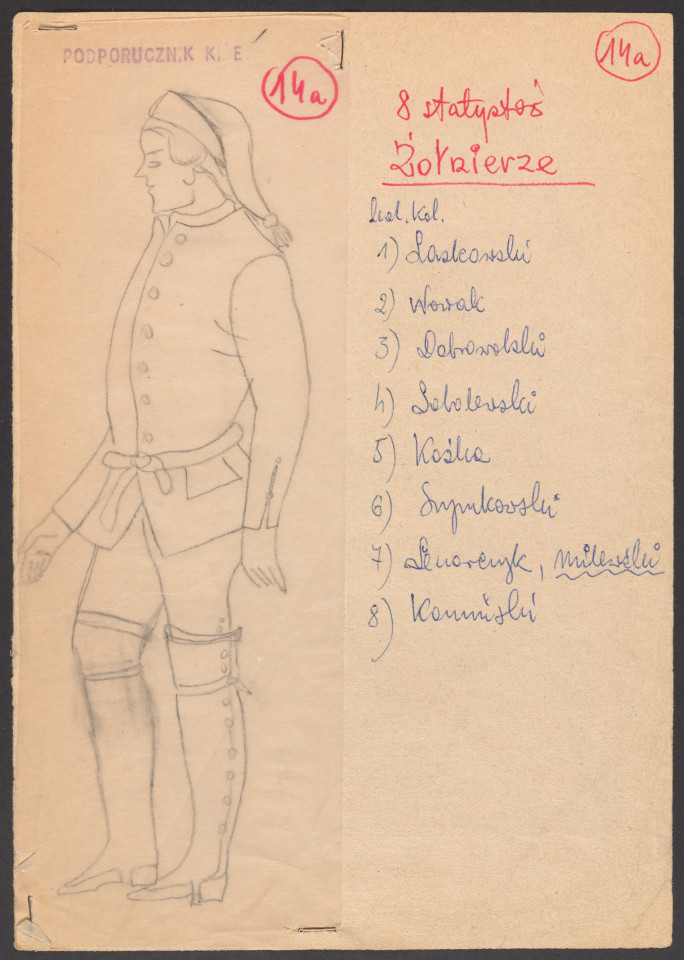 PODPORUCZNIK K E
14a
14a
8 statystów
Żołnierze
kol.
1) Laskowski
2) Nowak
3) Dobrowolski
4) Sobolewski
5) Kośka
6)
7) , Milewski
8) Kamiński